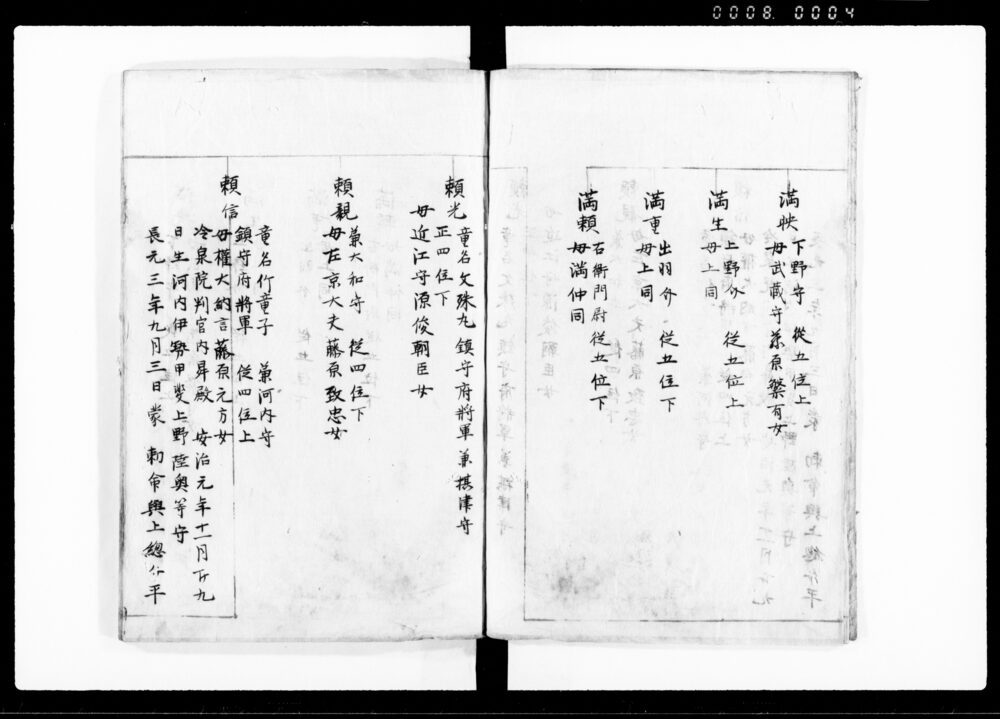 0008. 0004
満映 下野守 從五位上
母武蔵守藤原繁有女
満生 上野介 從五位上
母上同
満重 出羽介 從五位下
母上同
満頼 右衛門尉 從五位下
母満仲同
頼光 童名文殊丸 鎮守府將軍 兼摂津守
正四位下
母近江守源俊朝臣女
頼親 兼大和守 從四位下
母左京大夫藤原致忠女
頼信 童名竹童子 兼河内守
鎮守府將軍 從四位上
母權大納言藤原元方女
冷泉院判官内昇殿 安治元年十一月廿九
日生河内伊勢甲斐上野陸奥等守
長元三年九月三日蒙 勅命與上總介平